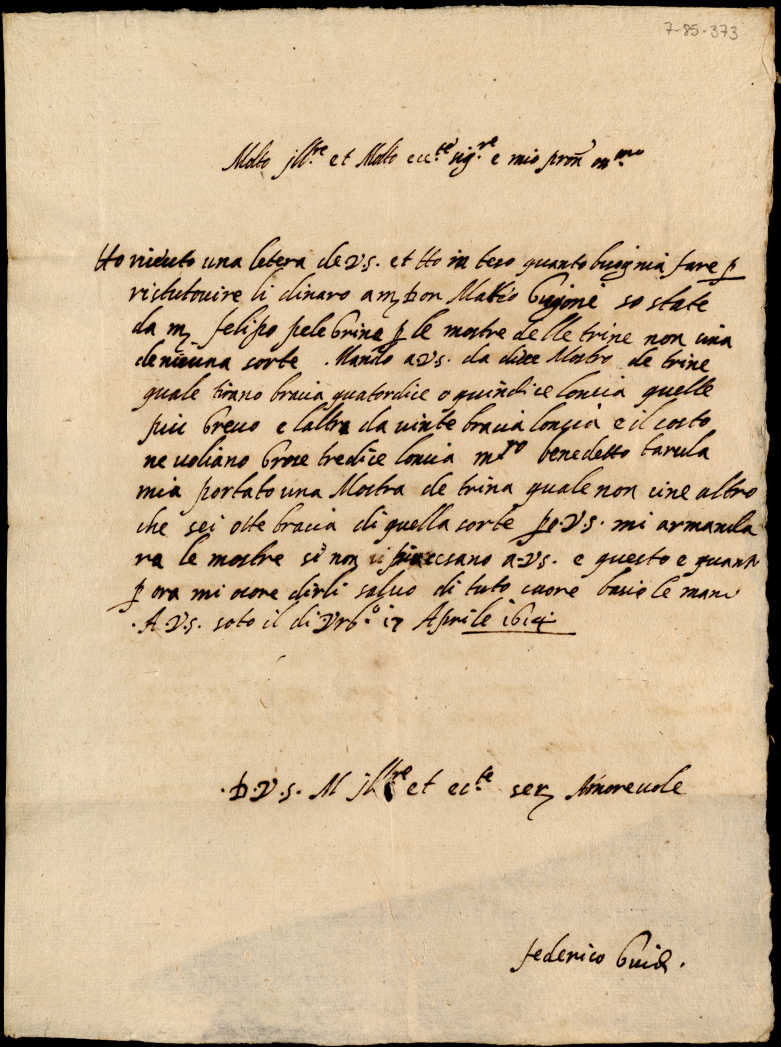 7-85-373
Molto jll.re et Molto ecc.te sig.re e mio pron oss.mo
Ho riceuto una letera de V.S. et Ho in teso quanto bisognia fare p
ristutouire li dinaro a m don so state
da m felipo pelegrine p le mostre delle trine non
de niccuna sorte . Mando a V.S. da dicce Mostro de trine
quale tirano bracia quatordice o quindice loncia quelle
piu Greuo e l'altra da uinte bracia loncia e il costo
ne uoliano Grose tredice loncia m.ro benedetto tarula
mia portato una Mostra de trina quale non uine altro
che sei otte bracia di quella sorte po V.S. mi armanda
ra le mostre si non piacesano a V.S. e questo e quant
p ora mi ocore dirli saluo di tuto cuore bacio le mani
. A V.S. soto il di Vrb.o 17 Aprile 1614
. D. V. S. M jll.re et ec.te ser Amoreuole
federico Guidi .